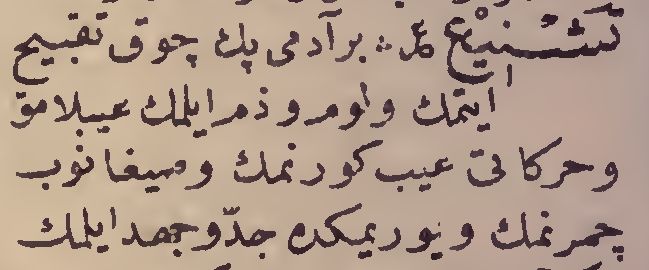 تَشْنِيْع ع‍ : بر آدمی پك چوق تقبیح
ایتمك ولوم وذم ایلمك عیبلامق
وحركاتی عیب كورنمك وصیغانوب
چمرنمك ویوریمكده جدّ وجهد ایلمك